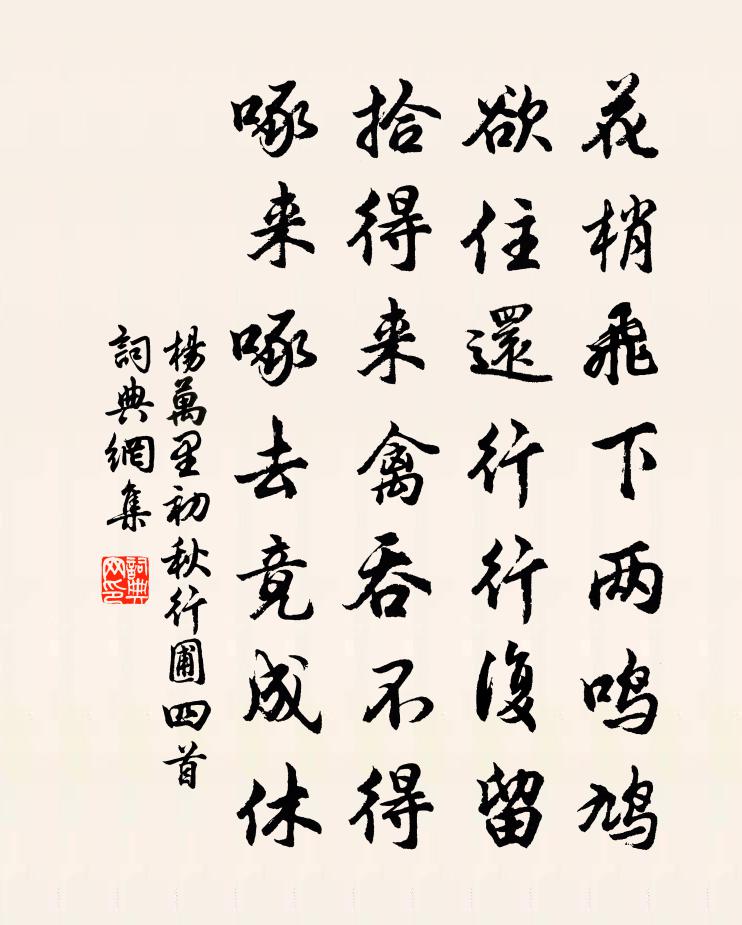 花梢飛下两鸣鳩
欲住還行行復留
拾得来禽吞不得
啄来啄去竟成休
楊萬里初秋行圃四首
詞典網集
詞典网印